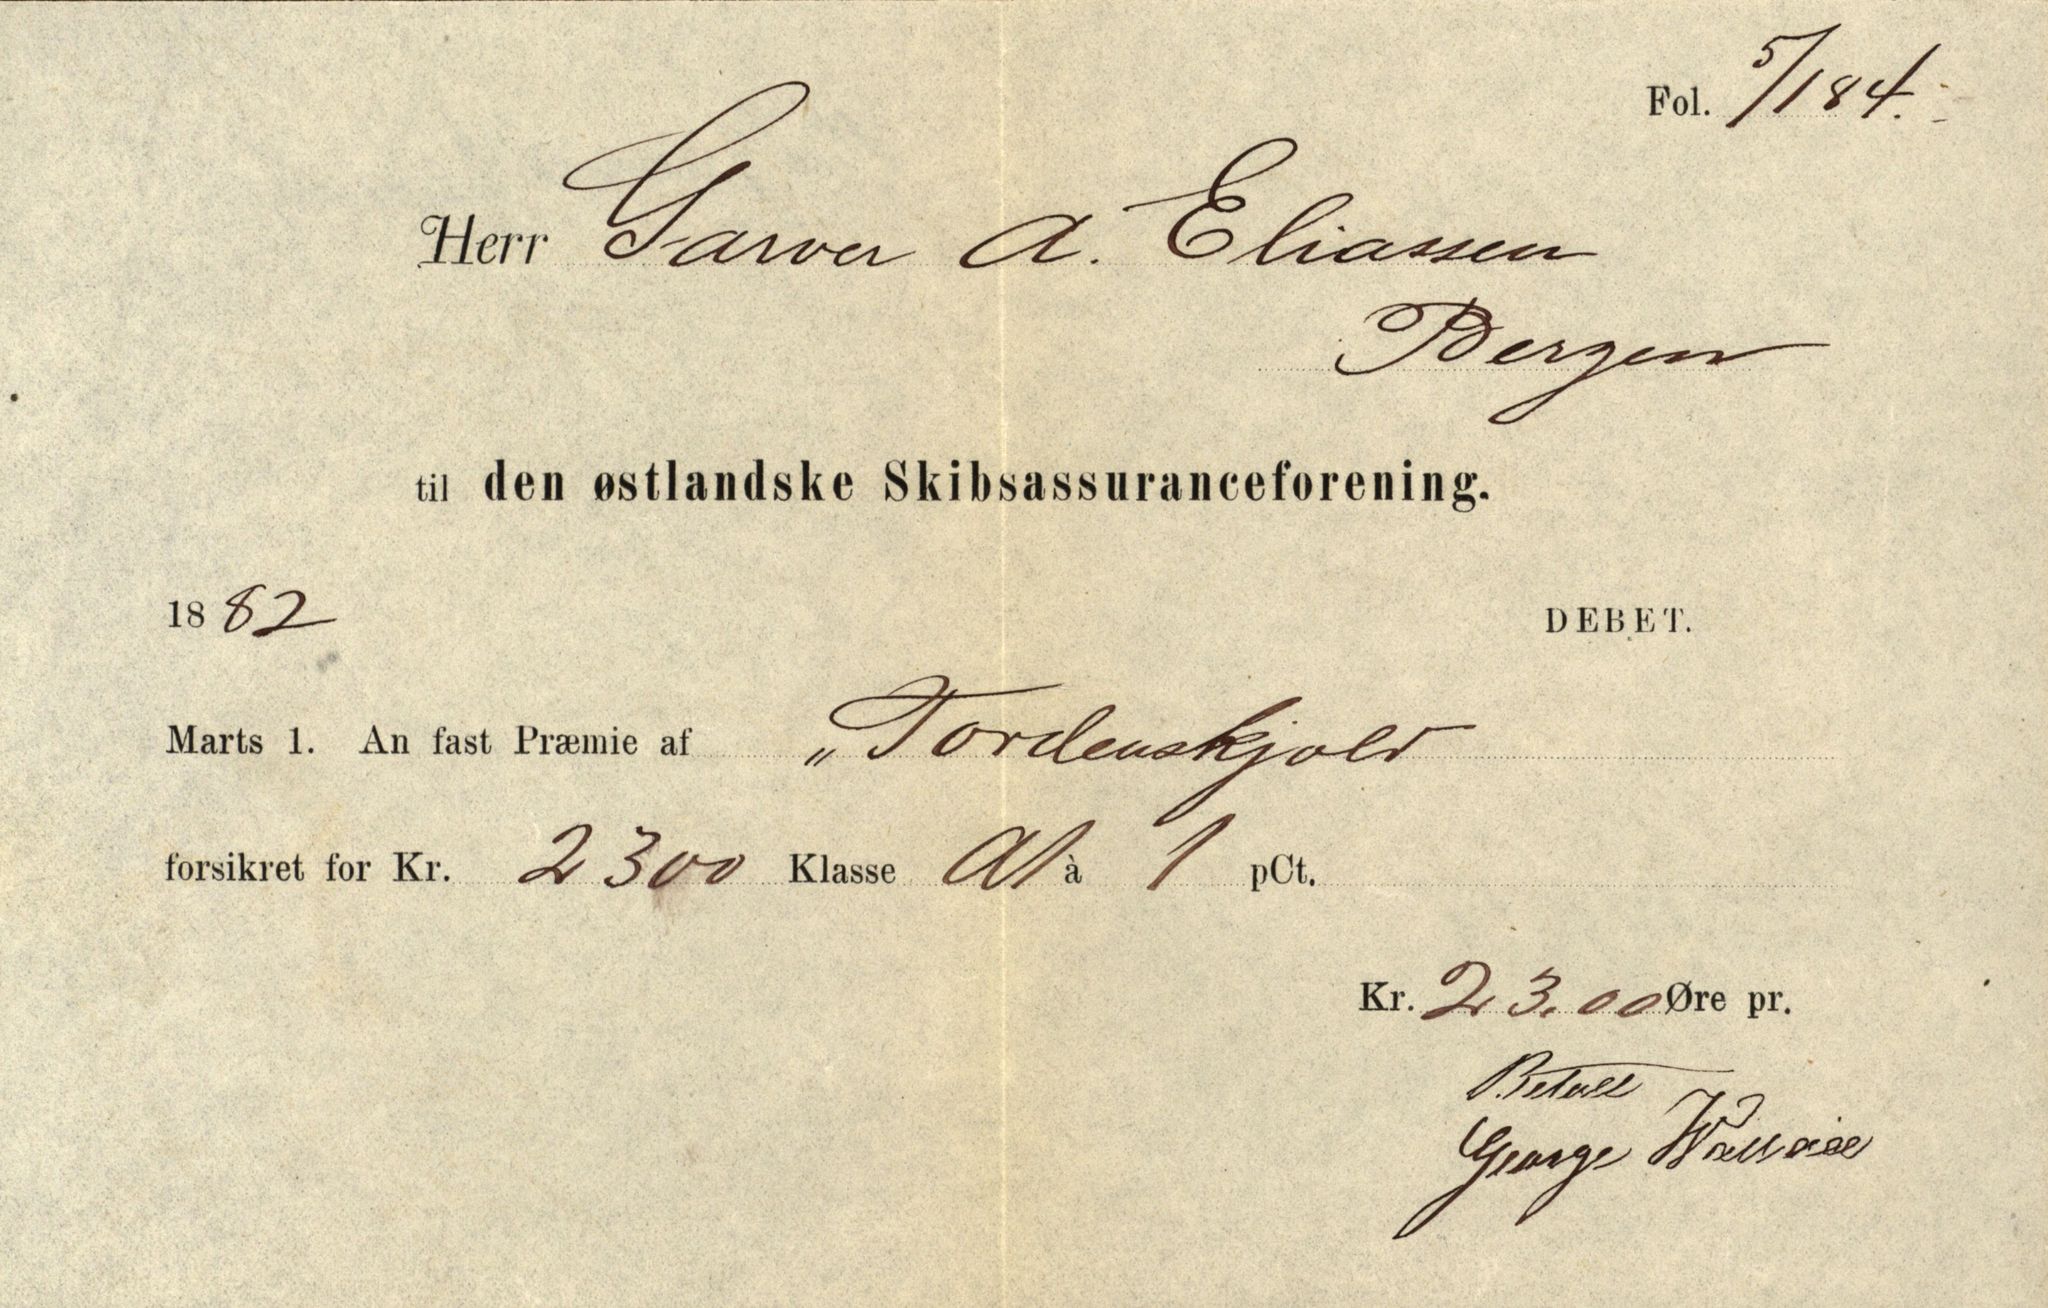 Fol. 5/184.
Herr Garver A. Eliassen
Bergen
til den østlandske Skibsassuranceforening.
1882 DEBET.
Marts 1. An fast Præmie af „Tordenskjold
forsikret for Kr. 2300 Klasse A1 à 1 pCt.
Kr. 23.00 Øre pr.
Betalt
George Wallace